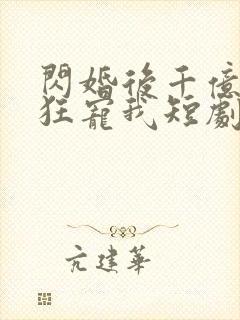 閃婚後千億
狂寵我短劇
亢建華